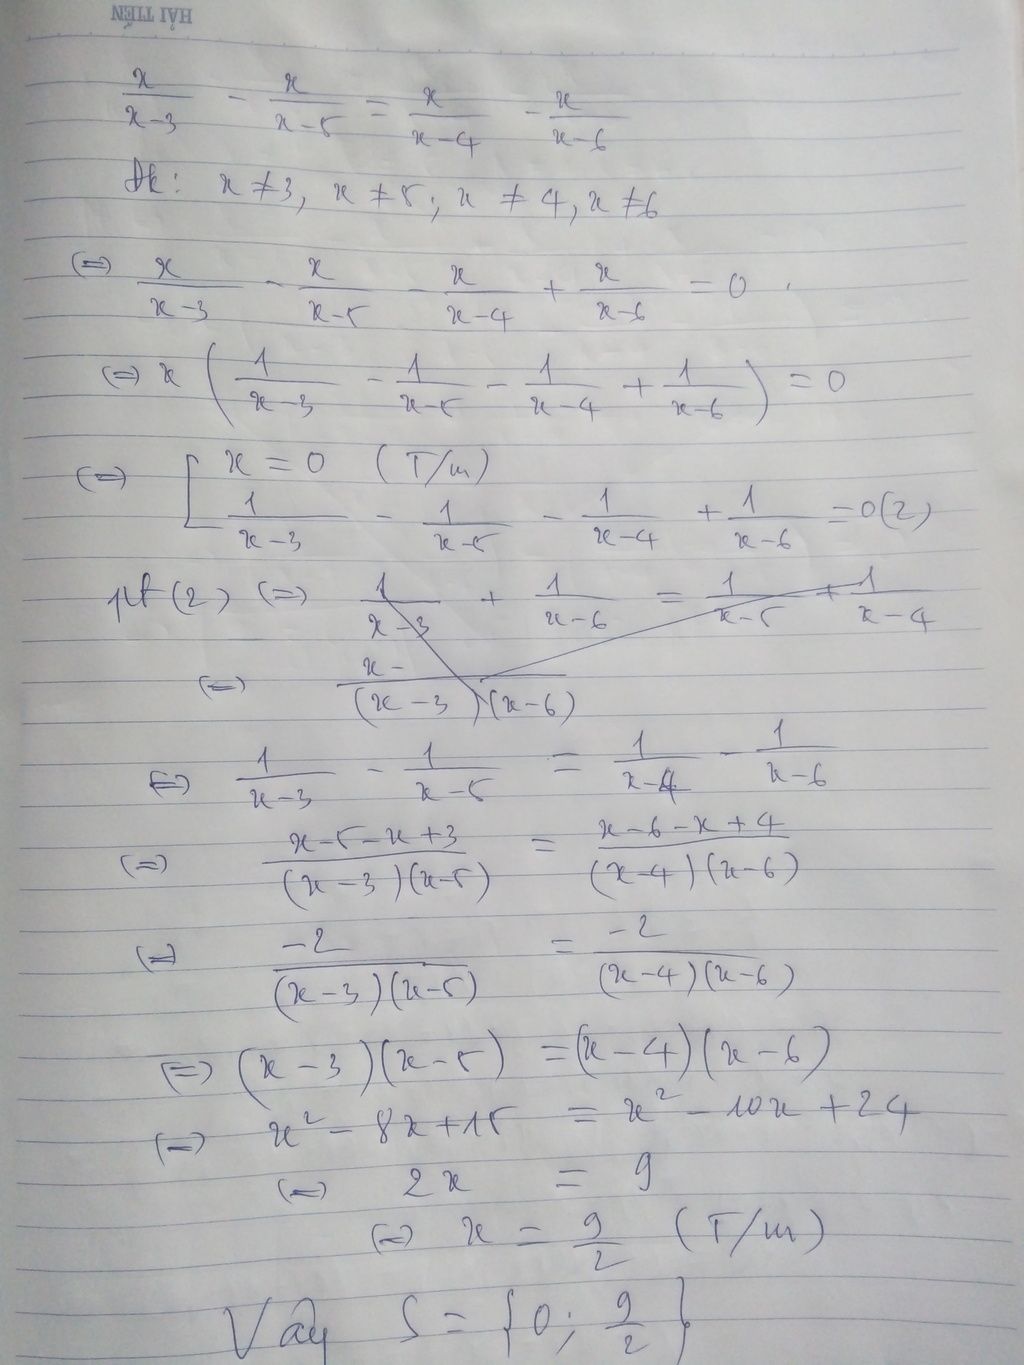 HẢI TIẾN
x/(x-3) - x/(x-5) = x/(x-4) - x/(x-6)
Đk: x ≠ 3, x ≠ 5; x ≠ 4, x ≠ 6
(=) x/(x-3) - x/(x-5) - x/(x-4) + x/(x-6) = 0
(=) x (1/(x-3) - 1/(x-5) - 1/(x-4) + 1/(x-6)) = 0
(=) [ x = 0 (T/m)
1/(x-3) - 1/(x-5) - 1/(x-4) + 1/(x-6) = 0 (2)
pt (2) (=) 1/(x-3) + 1/(x-6) = 1/(x-5) + 1/(x-4)
(=) x- /(x-3)(x-6)
(=) 1/(x-3) - 1/(x-5) = 1/(x-4) - 1/(x-6)
(=) (x-5-x+3)/((x-3)(x-5)) = (x-6-x+4)/((x-4)(x-6))
(=) -2/((x-3)(x-5)) = -2/((x-4)(x-6))
(=) (x-3)(x-5) = (x-4)(x-6)
(=) x² - 8x + 15 = x² - 10x + 24
(=) 2x = 9
(=) x = 9/2 (T/m)
Vậy S = {0; 9/2}